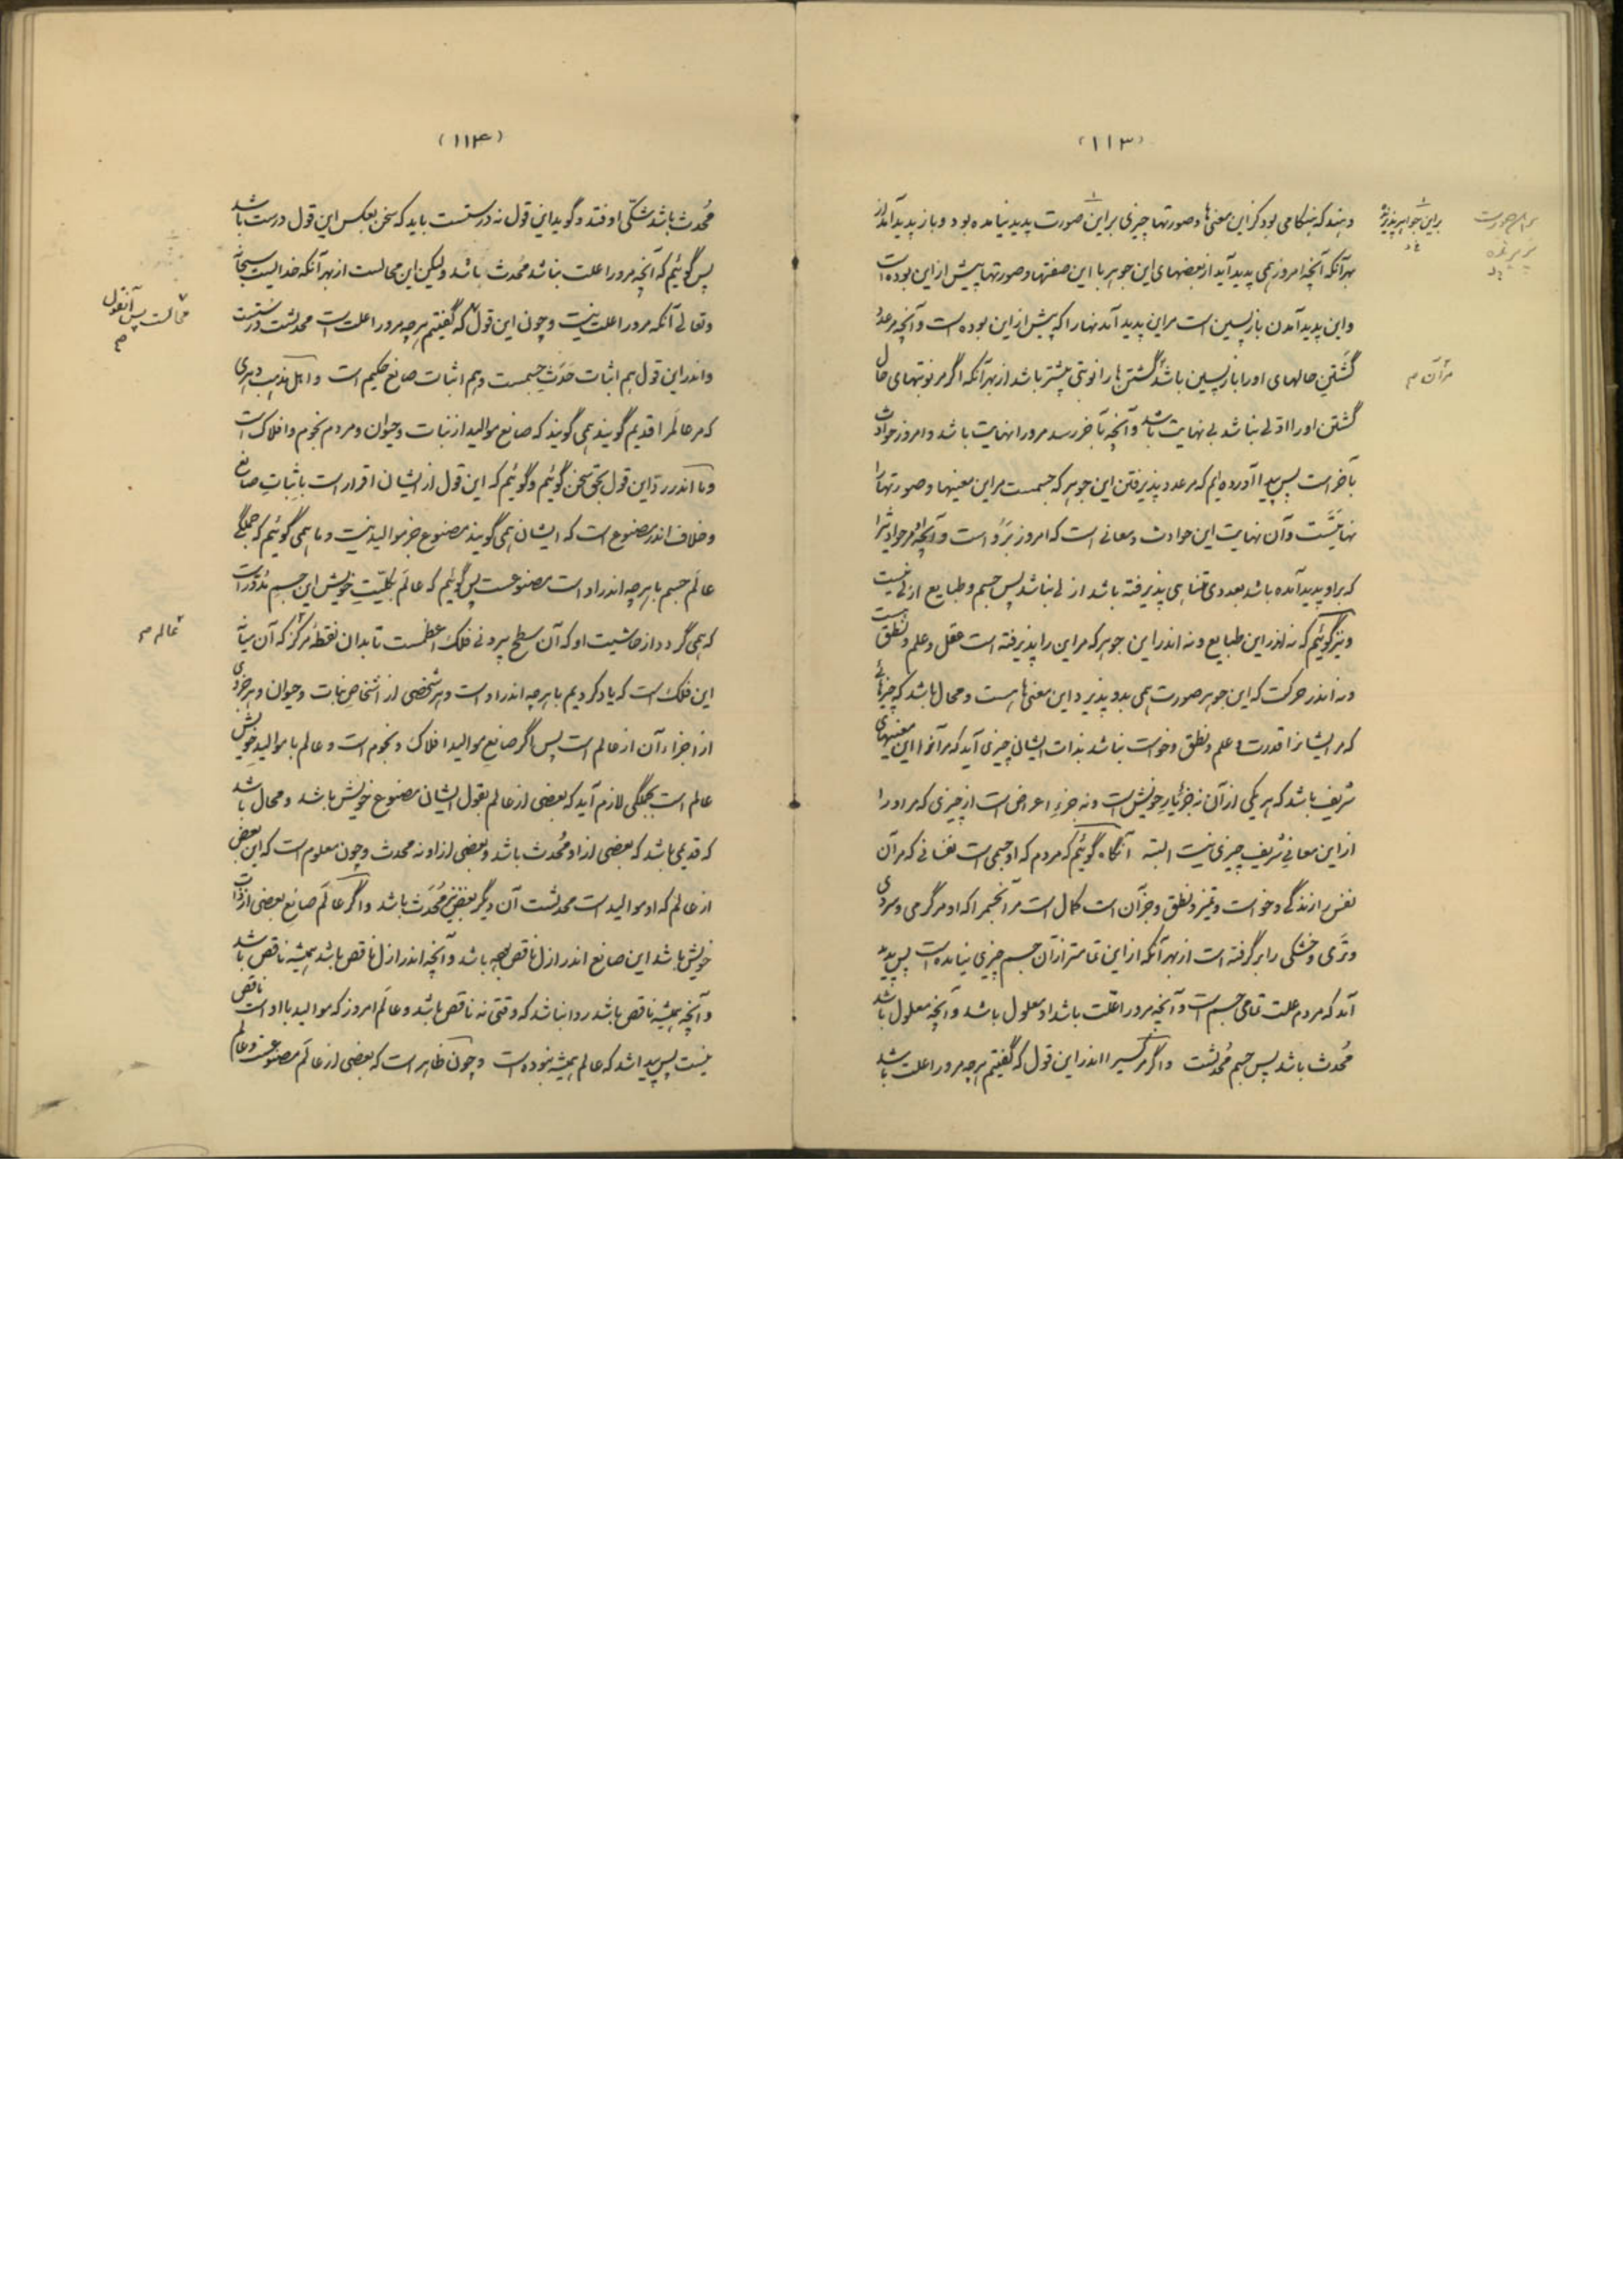 (۱۱۳)
دهند که هنگامی بود کزاین معنی‌ها و صورتها چیزی براین صورت پدید نیامده بود و باز پدید آمد از
بهر آنکه آنچه امروز همی پدید آید از بعضهای این جوهر با این صفتها و صورتها پیش ازاین بوده است
واین پدید آمدن بازپسین است مراین پدید آمدنهارا که پیش ازاین بوده است و آنچه مرعدد
گشتن حالهای اورا بازپسین باشد گشتن‌ها را نوبتی پیشتر باشد ازبهر آنکه اگر مر نوبتهای حال
گشتن اورا اولی نباشد بی نهایت باشد و آنچه بآخر رسد مرورا نهایت باشد و امروز حوادث
بآخر است پس پیدا آورده‌ایم که مرعدد پذیرفتن این جوهر که جسمست مراین معنیها و صورتها را
نهایتست و آن نهایت این حوادث و معانی است که امروز برو است و آنچه مرحوادثرا
که براو پدید آمده باشد بعددی متناهی پذیرفته باشد ازلی نباشد پس جسم و طبایع ازلی نیست
ونیز گوئیم که نه اندراین طبایع و نه اندر این جوهر که مراین را پذیرفته است عقل و علم و نطق است
و نه اندر حرکت که این جوهر صورت همی بدو پذیرد این معنی‌ها هست و محال باشد که چیزهائی
که مر ایشانرا قدرت و علم و نطق و خواست نباشد بذات ایشان چیزی آید که مر آنرا این معنیهای
شریف باشد که هر یکی از آن نه جزء یار خویش است و نه جزء اعراض است از چیزی که مر اورا
ازاین معانی شریف چیزی نیست البته آنگاه گوئیم که مردم که او جسمی است نفسانی که مرآن
نفس را زندگی و خواست و تمیز و نطق و جز آن است کمال است مر آنجسمرا که او مر گرمی و سردی
و تری و خشکی را بر گرفته است ازبهر آنکه ازاین تمامتر از آن جسم چیزی نیامده است پس پدید
آمد که مردم علت تمامی جسم است و آنچه مرورا علت باشد او معلول باشد و آنچه معلول باشد
محدث باشد پس جسم محدثست واگر مر کسیرا اندراین قول که گفتیم هرچه مرورا علت باشد
براین جواهر پذیرنده
مرآن م
(۱۱۴)
محدث باشد شکی اوفتد و گوید این قول نه درستست باید که سخن بعکس این قول درست باشد
پس گوئیم که آنچه مرورا علت نباشد محدث باشد ولیکن این محالست ازبهر آنکه خدایست سبحانه
وتعالی آنکه مرورا علت نیست و چون این قول که گفتیم هرچه مرورا علت است محدثست درستست
واندراین قول هم اثبات حدث جسمست وهم اثبات صانع حکیم است واهل مذهب دهری
که مرعالم را قدیم گویند همی گویند که صانع موالید از نبات و حیوان و مردم نجوم و افلاک است
و ما اندر رد این قول بحق سخن گوئیم و گوئیم که این قول از ایشان اقرار است باثبات صانع
وخلاف اندر مصنوع است که ایشان همی گویند مصنوع جز موالید نیست و ما همی گوئیم که جملگی
عالم جسم با هرچه اندراو است مصنوعست پس گوئیم که عالم بکلیت خویش این جسم مدور است
که همی گردد از حاشیت او که آن سطح بیرونی فلک اعظمست تا بدان نقطهٔ مرکز که آن میانه
این فلک است که یاد کردیم با هرچه اندراو است وهر شخصی از اشخاص نبات و حیوان وهر جزوی
از اجزاء آن از عالم است پس اگر صانع موالید افلاک و نجوم است و عالم با موالید خویش
عالم است بجملگی لازم آید که بعضی از عالم بقول ایشان مصنوع خویش باشد و محال باشد
که قدیمی باشد که بعضی از او محدث باشد و بعضی از او نه محدث و چون معلوم است که این بعض
از عالم که او موالید است محدثست آن دیگر بعض نیز محدث باشد واگر عالم صانع بعضی از ذات
خویش باشد این صانع اندر ازل ناقص بوده باشد و آنچه اندر ازل ناقص باشد همیشه ناقص باشد
و آنچه همیشه ناقص باشد روا نباشد که وقتی نه ناقص باشد و عالم امروز که موالید با او است ناقص
نیست پس پیدا شد که عالم همیشه نبوده است و چون ظاهر است که بعضی از عالم مصنوعست و عالم
محالست پس آنقول
عالم م